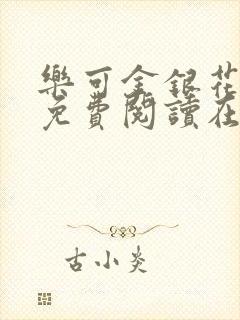 樂可金銀花
免費閱讀在
古小炎